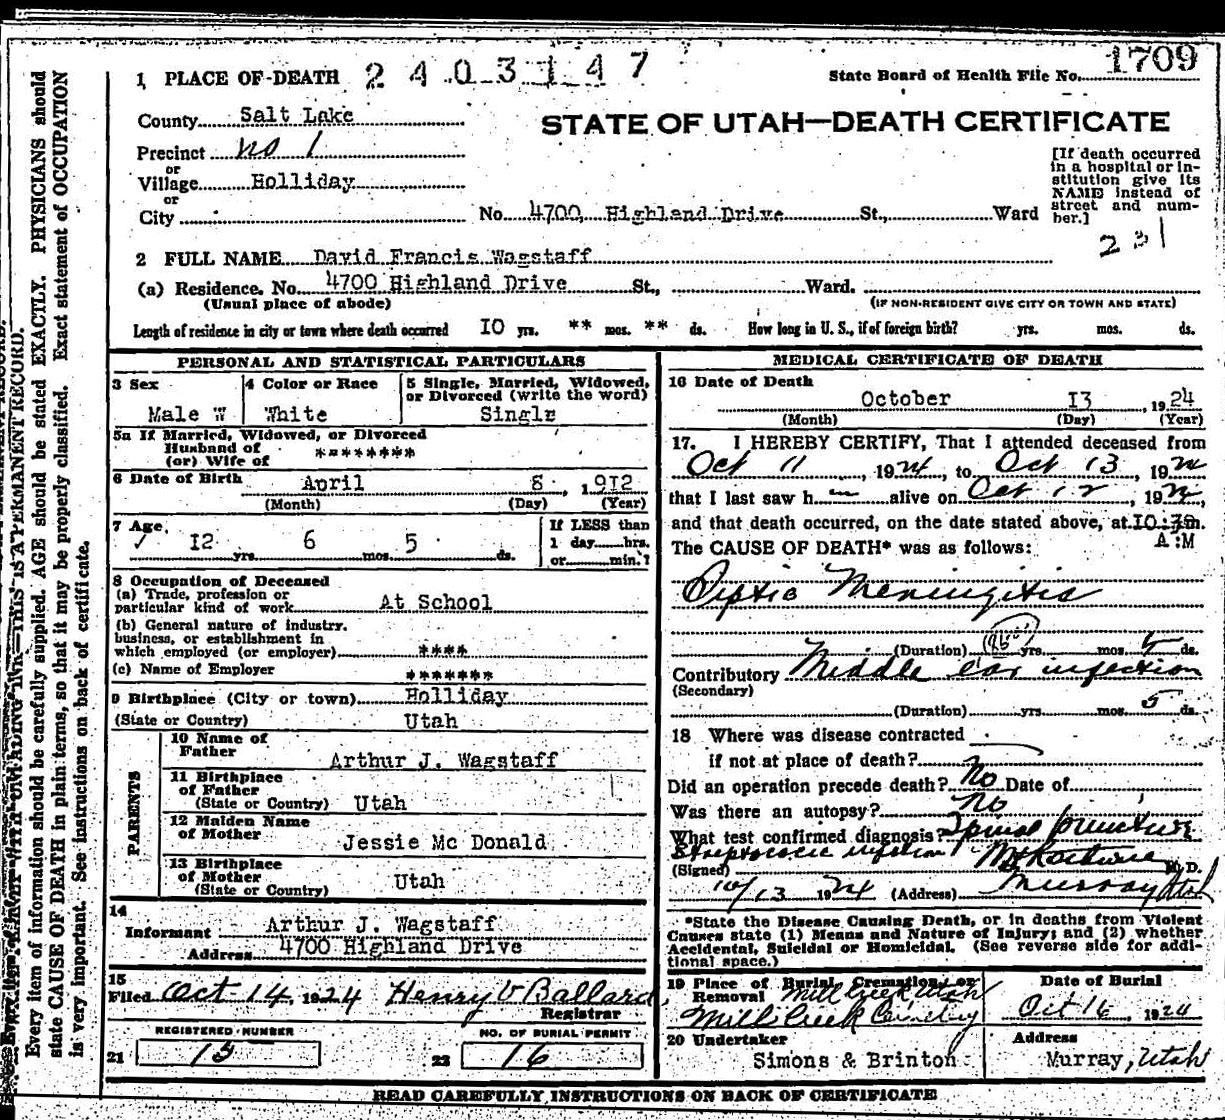 1 PLACE OF DEATH 2 4 0 3 1 4 7
State Board of Health File No. 1709
County Salt Lake
STATE OF UTAH—DEATH CERTIFICATE
Precinct no 1
or
Village Holliday
or
City No. 4700, Highland Drive St., Ward
[If death occurred
in a hospital or in-
stitution give its
NAME instead of
street and num-
ber.]
231
2 FULL NAME David Francis Wagstaff
(a) Residence. No. 4700 Highland Drive St., Ward.
(Usual place of abode) (IF NON-RESIDENT GIVE CITY OR TOWN AND STATE)
Length of residence in city or town where death occurred IO yrs. ** mos. ** ds. How long in U. S., if of foreign birth? yrs. mos. ds.
PERSONAL AND STATISTICAL PARTICULARS
3 Sex 4 Color or Race 5 Single, Married, Widowed,
or Divorced (write the word)
Male W White Singlr
5a If Married, Widowed, or Divorced
Husband of
(or) Wife of ********
6 Date of Birth April 8, 1912
(Month) (Day) (Year)
7 Age I2 yrs. 6 mos. 5 ds.
If LESS than
1 day hrs.
or min.?
8 Occupation of Deceased
(a) Trade, profession or
particular kind of work At School
(b) General nature of industry.
business, or establishment in
which employed (or employer) ****
(c) Name of Employer *******
9 Birthplace (City or town) Holliday
(State or Country) Utah
PARENTS
10 Name of
Father Arthur J. Wagstaff
11 Birthplace
of Father
(State or Country) Utah
12 Maiden Name
of Mother Jessie Mc Donald
13 Birthplace
of Mother
(State or Country) Utah
14
Informant Arthur J. Wagstaff
Address 4700 Highland Drive
15
Filed Oct 14, 1924 Henry V Ballard
Registrar
REGISTERED NUMBER NO. OF BURIAL PERMIT
21 15 22 16
MEDICAL CERTIFICATE OF DEATH
16 Date of Death
October I3, 1924
(Month) (Day) (Year)
17. I HEREBY CERTIFY, That I attended deceased from
Oct 11, 1924, to Oct 13, 192
that I last saw h alive on Oct 12, 192
and that death occurred, on the date stated above, at IO:30m.
A:M
The CAUSE OF DEATH* was as follows:
Septic Meningitis
(Duration) yrs. mos. 5 ds.
Contributory Middle ear infection
(Secondary)
(Duration) yrs. mos. 5 ds.
18 Where was disease contracted
if not at place of death?
Did an operation precede death? No Date of
Was there an autopsy? no
What test confirmed diagnosis? Spinal puncture
Streptococcic infection
(Signed) M.D.
10/13 1924 (Address) Murray Utah
*State the Disease Causing Death, or in deaths from Violent
Causes state (1) Means and Nature of Injury; and (2) whether
Accidental, Suicidal or Homicidal. (See reverse side for addi-
tional space.)
19 Place of Burial, Cremation or
Removal Mill Creek Utah
Mill Creek Cemetery
Date of Burial
Oct 16, 1924
20 Undertaker Address
Simons & Brinton Murray, Utah
READ CAREFULLY INSTRUCTIONS ON BACK OF CERTIFICATE
Every item of information should be carefully supplied. AGE should be stated EXACTLY. PHYSICIANS should
state CAUSE OF DEATH in plain terms, so that it may be properly classified. Exact statement of OCCUPATION
is very important. See instructions on back of certificate.